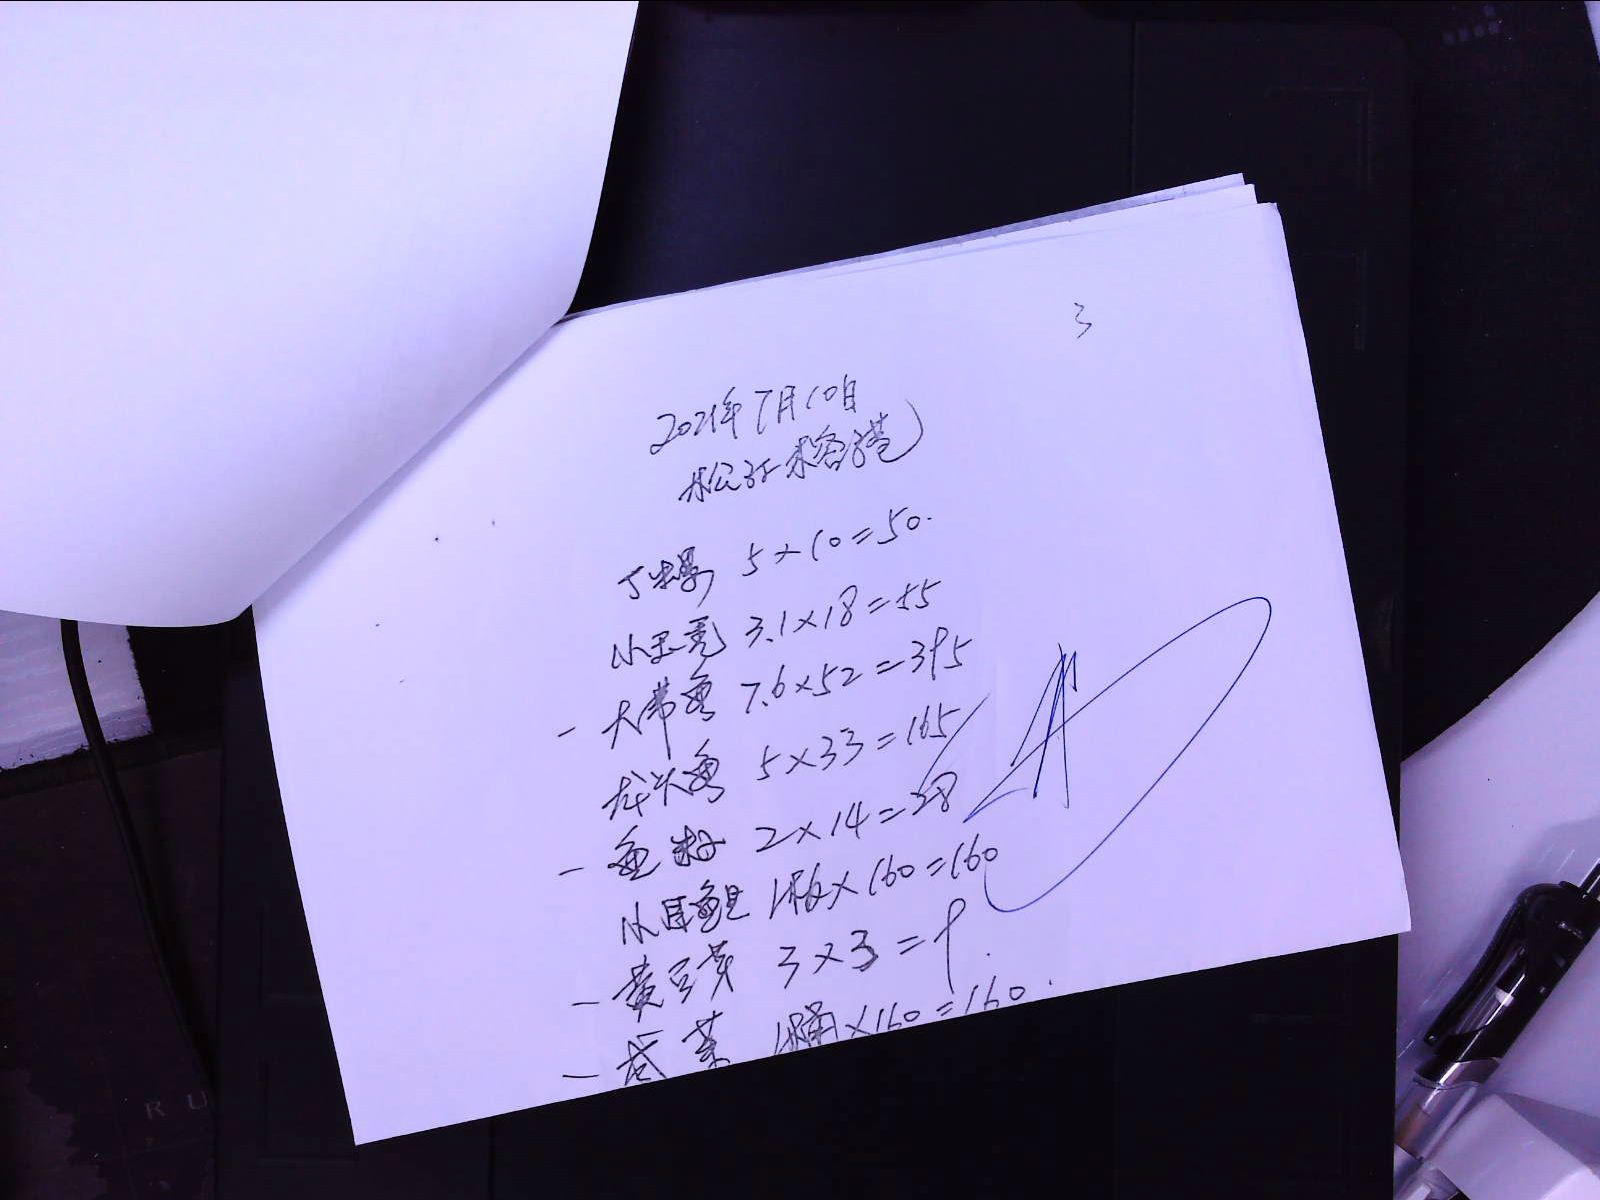 3
2021年7月10日
松江榕港
丁螺 5×10=50.
小王 3.1×18=55
- 大带鱼 7.6×52=395
龙头鱼 5×33=165
- 鱼籽 2×14=28
小 1板×160=160
- 黄豆芽 3×3=9.
- 菜 1桶×160=160.
RU